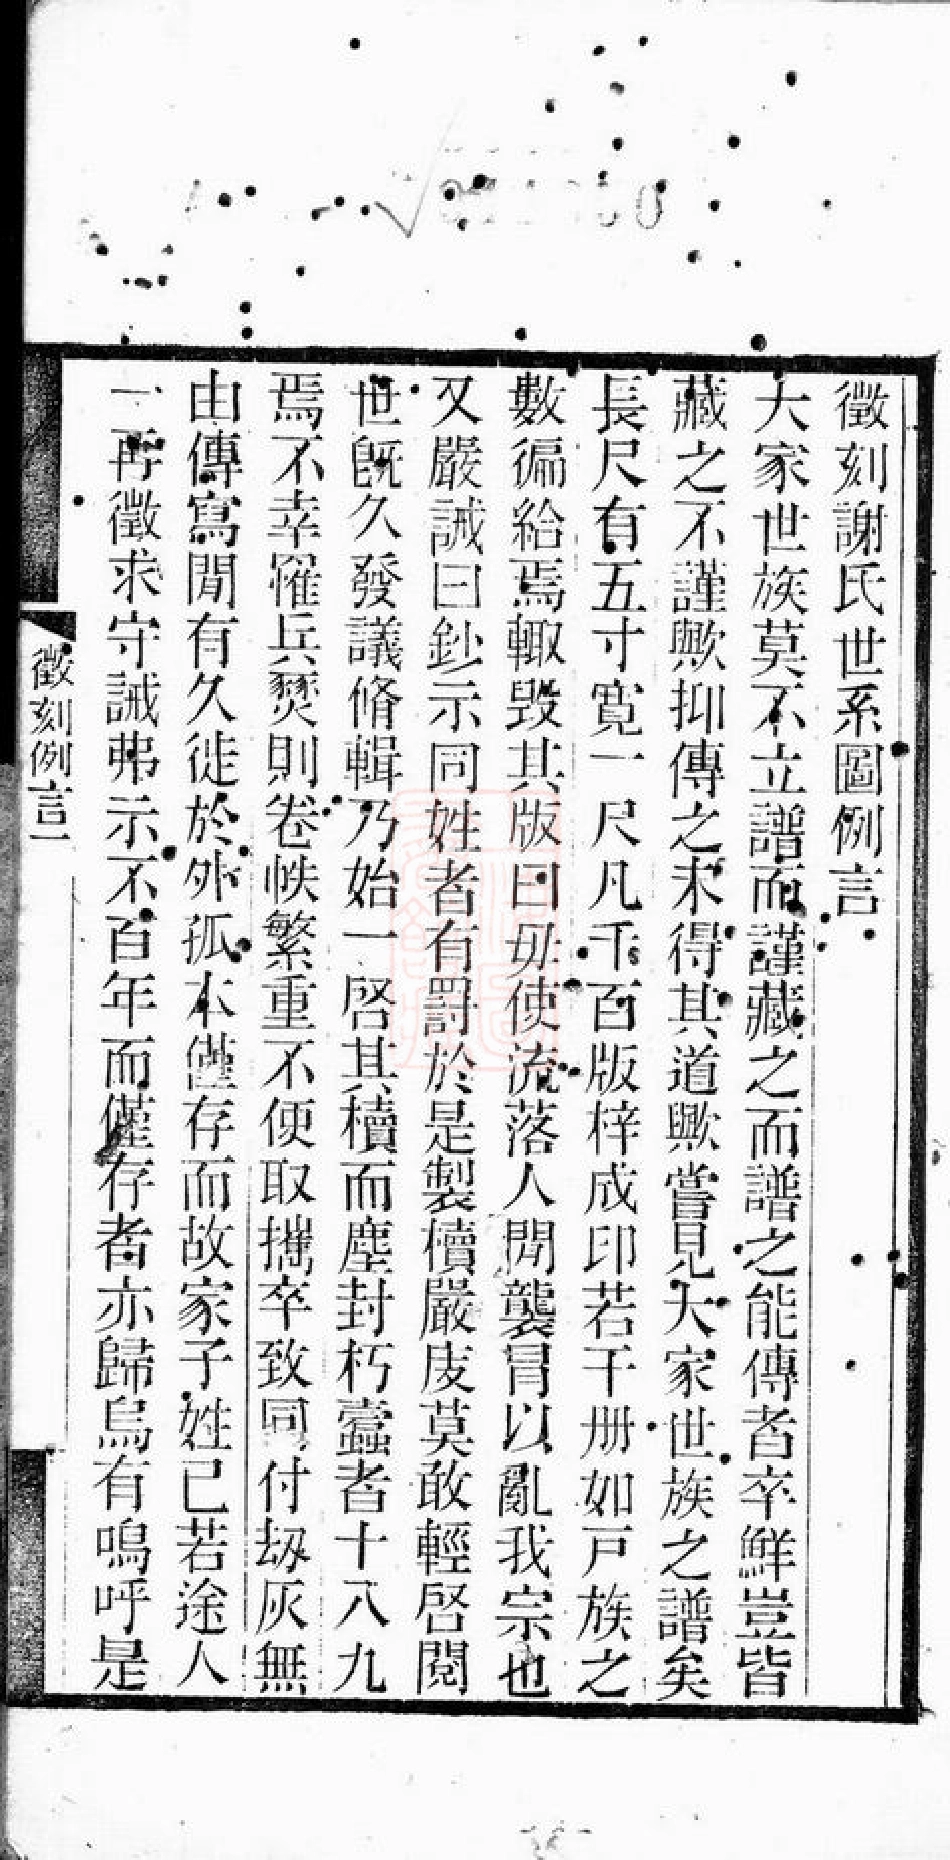 徵刻謝氏世系圖例言
大家世族莫不立譜而謹藏之而譜之能傳者卒鮮豈皆
藏之不謹歟抑傳之未得其道歟嘗見大家世族之譜矣
長尺有五寸寬一尺凡千百版梓成印若干册如戸族之
數徧給焉輙毀其版曰毋使流落人閒襲冒以亂我宗也
又嚴誡曰鈔示同姓者有罸於是製櫝嚴庋莫敢輕啓閱
世旣久發議脩輯乃始一啓其櫝而塵封朽蠹者十八九
焉不幸罹兵燹則卷帙繁重不便取攜卒致同付刼灰無
由傳寫閒有久徙於外孤本僅存而故家子姓已若途人
一再徵求守誡弗示不百年而僅存者亦歸烏有嗚呼是
徵刻例言一